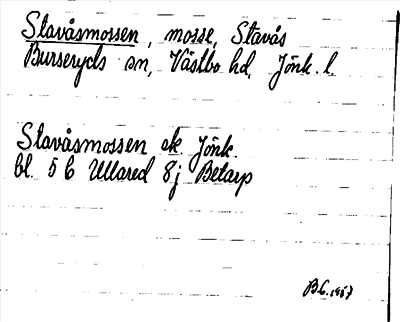 Stavåsmossen, mosse, Stavås
Burseryds sn, Västbo hd, Jönk. l.
Stavåsmossen ek Jönk.
bl. 5 C Ullared 8j Betarp
B.C. 1967